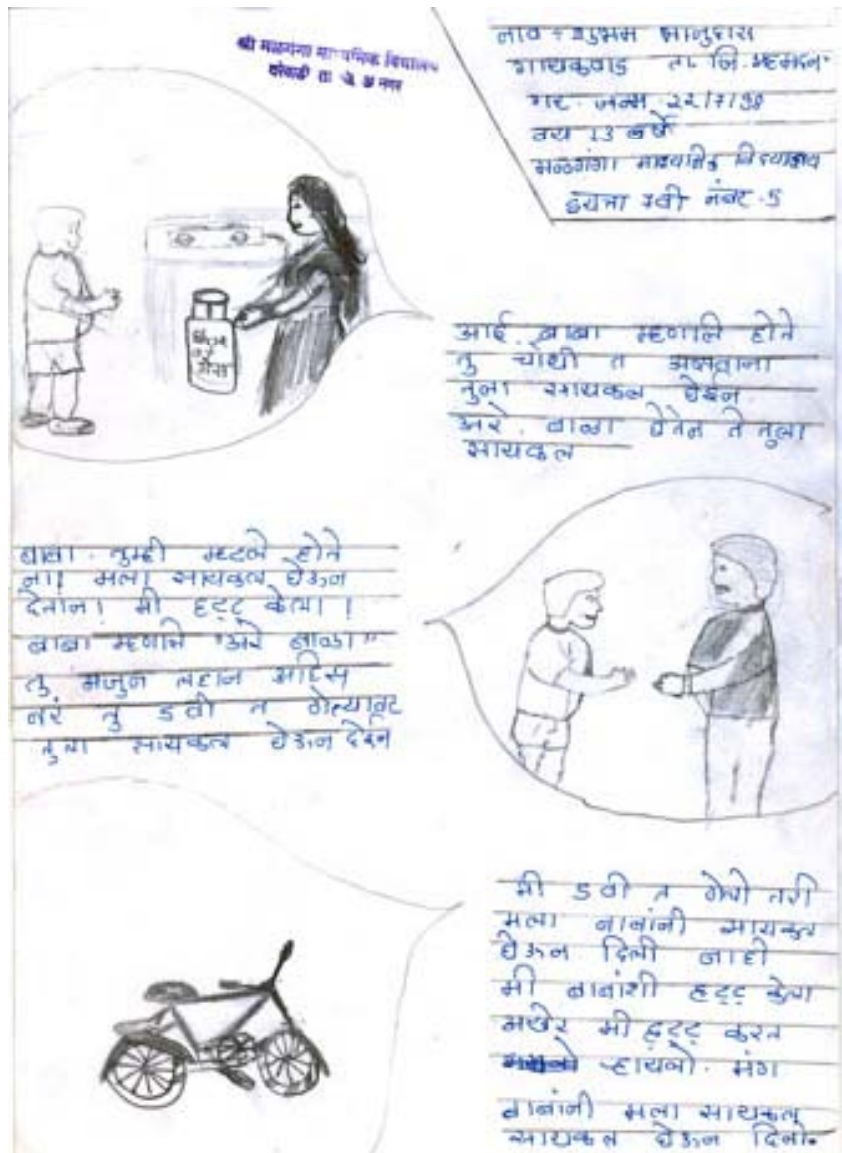 श्री मळगंगा माध्यमिक विद्यालय
ता जि अ नगर
नाव शुभम भानुदास
गायकवाड ता. जि. अहमदन
गर. जन्म 22/7/98
वय 13 वर्षे
मळगंगा माध्यमिक विद्यालय
इयत्ता नंबर. 5
आई. बाबा म्हणाले होते
तु चौथी त असताना
तुला सायकल घेईन
अरे. बाळा घेतेन ते तुला
सायकल
बाबा. तुम्ही म्हटले होते
ना! मला सायकल घेऊन
देतोन! मी हट्ट केला!
बाबा म्हणाले "अरे बाळा"
तु अजुन लहान आहेस
बरं तु 5 वी त गेल्यावर
तुला सायकल घेऊन देईन
मी 5 वी त गेलो तरी
मला बाबांनी सायकल
घेऊन दिली नाही
मी बाबांशी हट्ट केला
अखेर मी हट्ट करत
ऱ्हायलो. मंग
बाबांनी मला सायकल
सायकल घेऊन दिली.